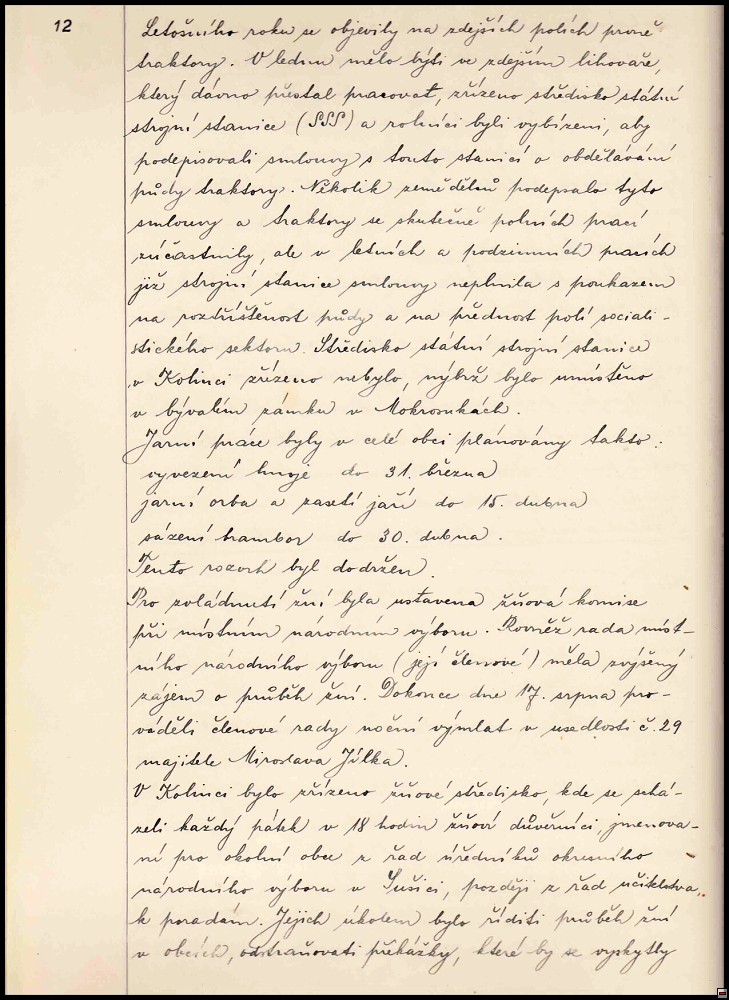 12
Letošního roku se objevily na zdejších polích prvně
traktory. V lednu mělo býti ve zdejším lihovaře,
který dávno přestal pracovat, zřízeno středisko státní
strojní stanice (SSS) a rolníci byli vybízeni, aby
podepisovali smlouvy s touto stanicí o obdělávání
půdy traktory. Několik zemědělců podepsalo tyto
smlouvy a traktory se skutečně polních prací
zúčastnily, ale v letních a podzimních pracích
již strojní stanice smlouvy neplnila s poukazem
na roztříštěnost půdy a na přednost polí sociali-
stického sektoru. Středisko státní strojní stanice
v Kolinci zřízeno nebylo, nýbrž bylo umístěno
v bývalém zámku v Mokrosukách.
Jarní práce byly v celé obci plánovány takto:
vyvezení hnoje do 31. března
jarní orba a zasetí jaří do 15. dubna
sázení brambor do 30. dubna.
Tento rozvrh byl dodržen.
Pro zvládnutí žní byla ustavena žňová komise
při místním národním výboru. Rovněž rada míst-
ního národního výboru (její členové) měla zvýšený
zájem o průběh žní. Dokonce dne 17. srpna pro-
váděli členové rady noční výmlat v usedlosti č. 29
majitele Miroslava Jílka.
V Kolinci bylo zřízeno žňové středisko, kde se schá-
zeli každý pátek v 18 hodin žňoví důvěrníci, jmenova-
ní pro okolní obce z řad úředníků okresního
národního výboru v Sušici, později z řad učitelstva,
k poradám. Jejich úkolem bylo říditi průběh žní
v obcích, odstraňovati překážky, které by se vyskytly